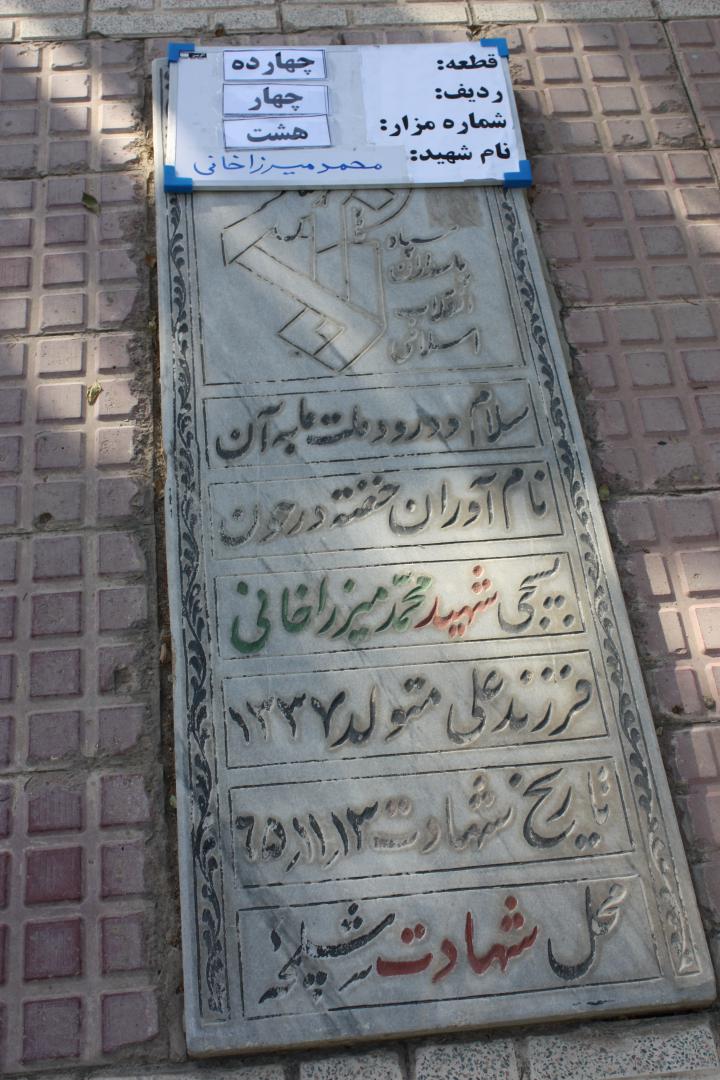 قطعه: چهارده
ردیف: چهار
شماره مزار: هشت
نام شهید: محمد میرزاخانی
سپاه
پاسداران
انقلاب
اسلامی
سلام و درود ملت ما به آن
نام آوران خفته در خون
بسیجی شهید محمد میرزاخانی
فرزند علی متولد ۱۳۳۷
تاریخ شهادت ۶۵٫۱۱٫۱۳
محل شهادت شلمچه